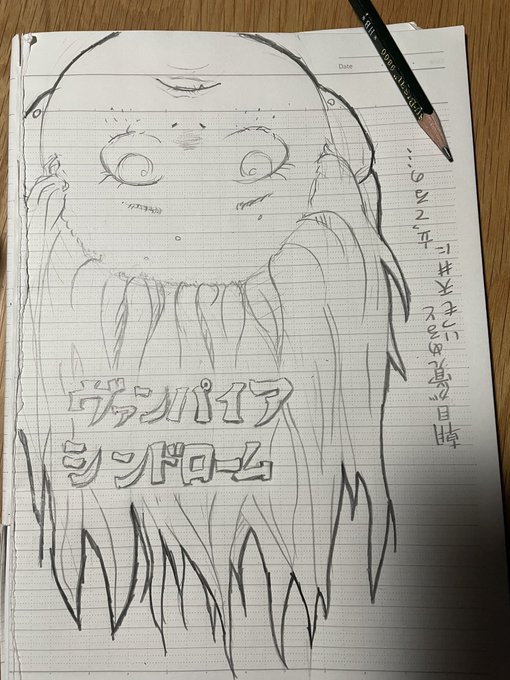 Date
ヴァンパイア
シンドローム
朝目が覚めると
いつも天井に立ってるの…